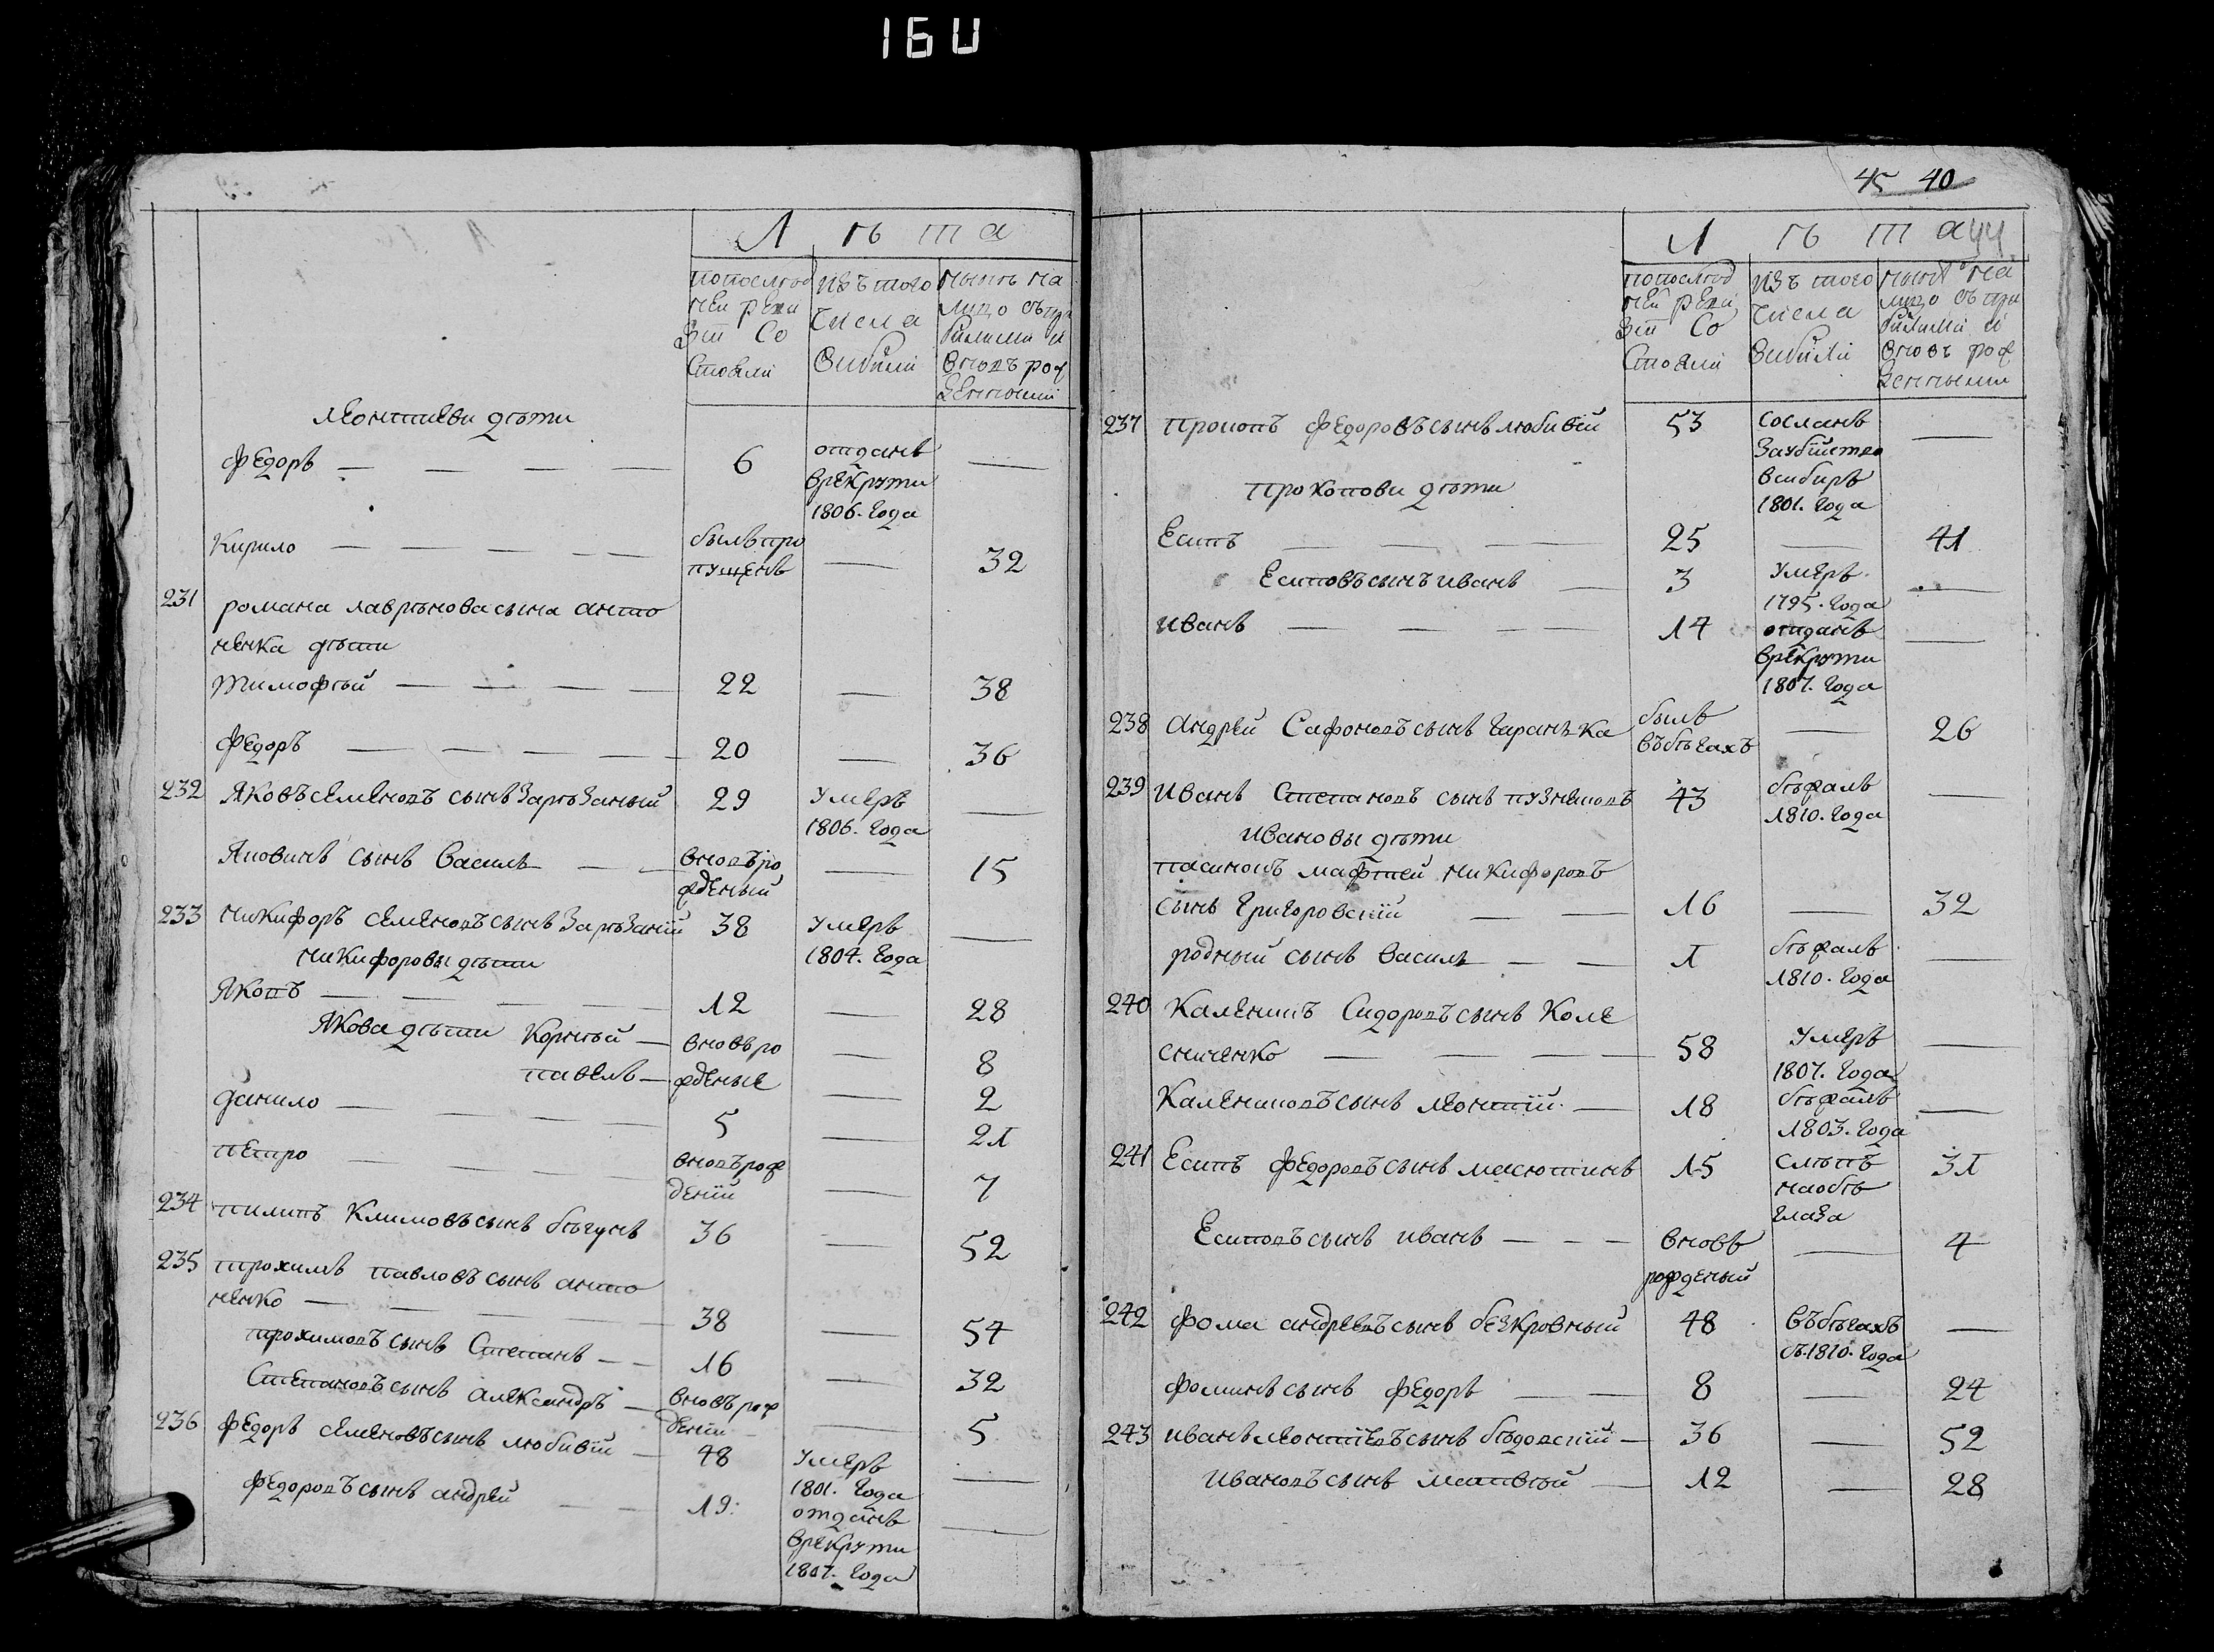 16U
Лѣта
попослѣд ней реви зіи Со стояли
изъ того числа выбыли
нынѣ на лицо съ при былыми и вновь рож денными
Леонтиеви дѣти
Федоръ — 6 отданъ —
врекрути
1806. Года
Кирило — былъ про — 32
пущенъ
231 романа лаврѣнова сына анто
ненка дѣти
Тимофѣй — 22 — 38
Федоръ — 20 — 36
232 Яковъ семеновъ сынъ Зарѣзаный 29 умеръ —
1806. Года
Яковинъ сынъ Василь — вновь ро — 15
жденый
233 Никифоръ семеновъ сынъ Зарѣзаній 38 умеръ —
1804. Года
никифоровы дѣти
Яковъ — 12 — 28
Якова дѣти Корнѣй — вновь ро — 8
павелъ — жденые — 2
данило — 5 — 21
петро — вновь рож — 7
деніи
234 пилипъ Климовъ сынъ бѣгунъ 36 — 52
235 трохимъ павловъ сынъ анто
ненко — 38 — 54
трохимовъ сынъ Степанъ — 16 — 32
Степановъ сынъ александръ — вновь рож — 5
деніи
236 федоръ семеновъ сынъ любивіи — 48 умеръ —
1801. Года
федоровъ сынъ андрей — 19: отданъ —
врекрути
1807. Года
45 40
Лѣта 44
попослѣд ней реви зіи Со стояли
изъ того числа выбыли
нынѣ на лицо съ при былыми и вновь рож денными
237 прокопъ федоровъ сынъ любивіи 53 сосланъ —
заубийство
всибирь
1801. Года
прокопови дѣти
Есипъ — 25 — 41
Есиповъ сынъ иванъ — 3 умеръ. —
1795. Года
иванъ — 14 отданъ —
врекрути
1807. Года
238 андрей Сафоновъ сынъ гаранька былъ — 26
въбѣгахъ
239 иванъ Степановъ сынъ пузнецовъ 43 бѣжалъ —
1810. Года
ивановы дѣти
пасинокъ мафтей никифоровъ
сынъ григоровскій — 16 — 32
родный сынъ василь — 1 бѣжалъ —
1810. Года
240 Каленикъ Сидоровъ сынъ Коле
сниченко — 58 умеръ —
1807. Года
Калениковъ сынъ леонтій. — 18 бѣжалъ —
1803. Года
241 Есипъ федоровъ сынъ масютинъ 15 слѣпъ 31
наобѣ
глаза
Есиповъ сынъ иванъ — вновь — 4
рожденый
242 фома андреевъ сынъ безкровный 48 въбѣгахъ —
съ 1810. Года
фоминъ сынъ федоръ — 8 — 24
243 иванъ леонтіевъ сынъ бѣдовскій — 36 — 52
ивановъ сынъ матвѣй — 12 — 28